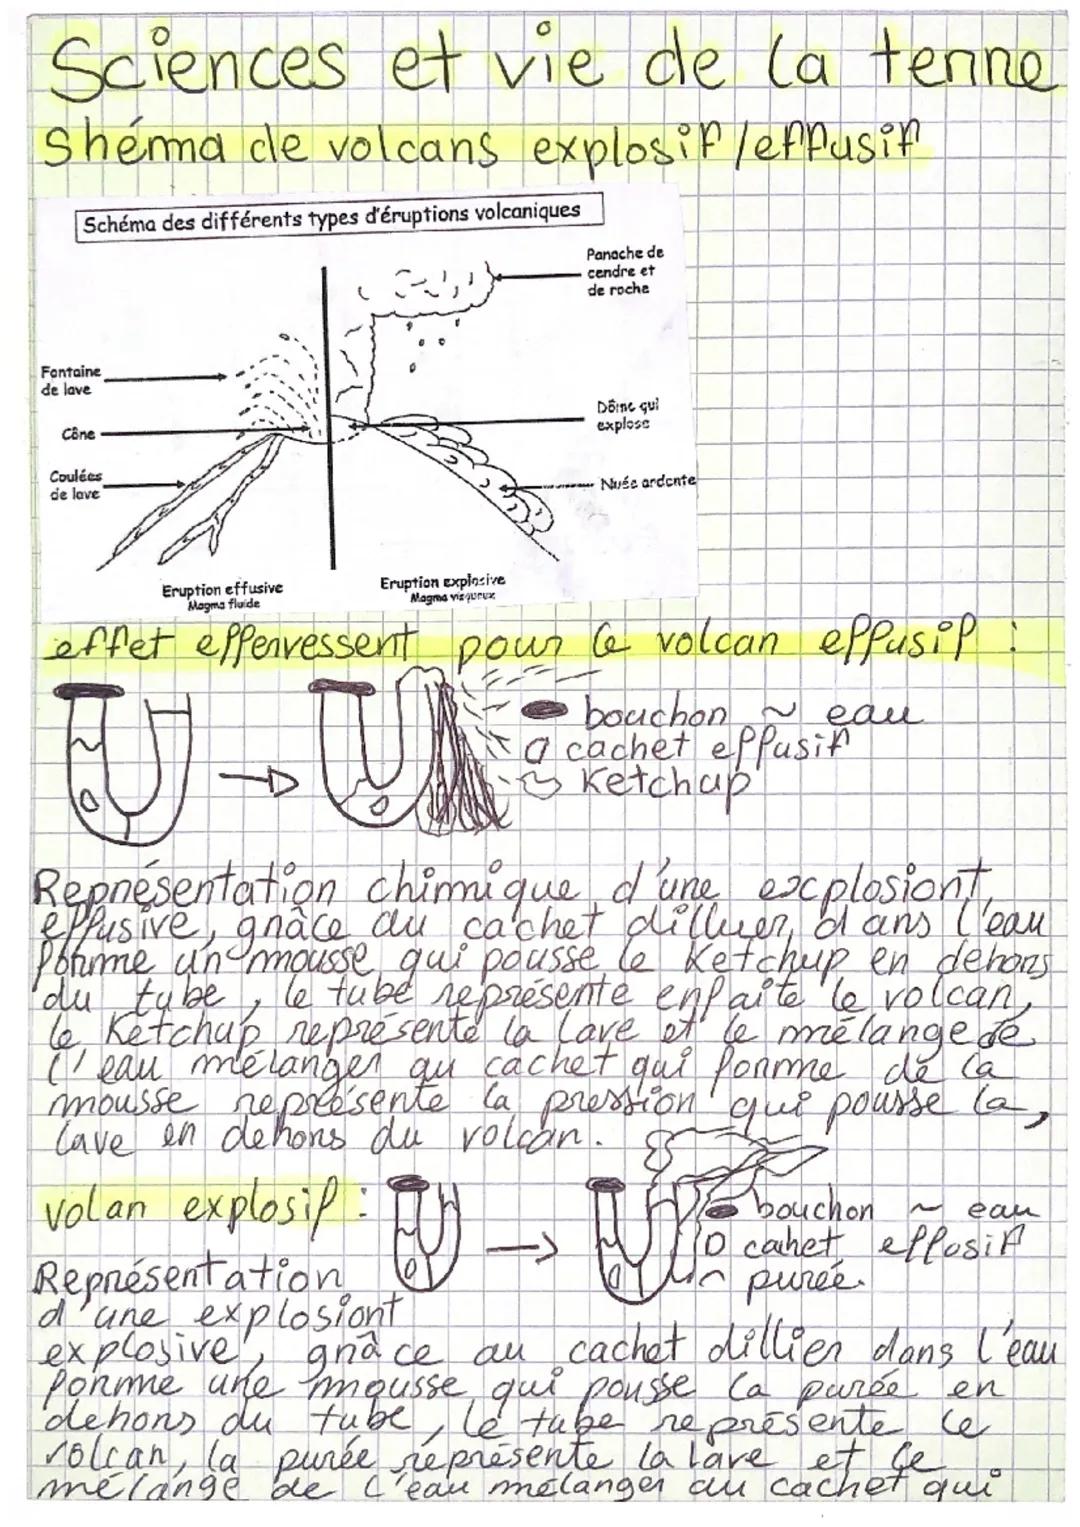 Sciences et vie de la terre
Shémma de volcans explosif / effusif
Schéma des différents types d'éruptions volcaniques
Panache de
cendre et
de roche
Fontaine
de lave
Dôme qui
explose
Cône
Coulées
de lave
Nuée ardente
Eruption effusive
Magma fluide
Eruption explosive
Magma visqueux
effet effervessent pour le volcan effusif :
bouchon ~ eau
cachet effusif
Ketchup
Représentation chimmique d'une explosiont,
effusive, grâce au cachet dilluer, dans l'eau
formme un mousse qui pousse le Ketchup en dehors
du tube, le tube représente enfaite le volcan,
le Ketchup représente la lave et le mélange de
l'eau mélanger au cachet qui formme de la
mousse représente la pression qui pousse la,
lave en dehors du volcan.
volan explosif :
bouchon ~ eau
cahet effusif
purée.
Représentation
d'une explosiont
explosive, grâce au cachet dillier dans l'eau
formme une mousse qui pousse la purée en
dehors du tube, le tube représente le
volcan, la purée représente la lave et le
mélange de l'eau mélanger au cachet qui